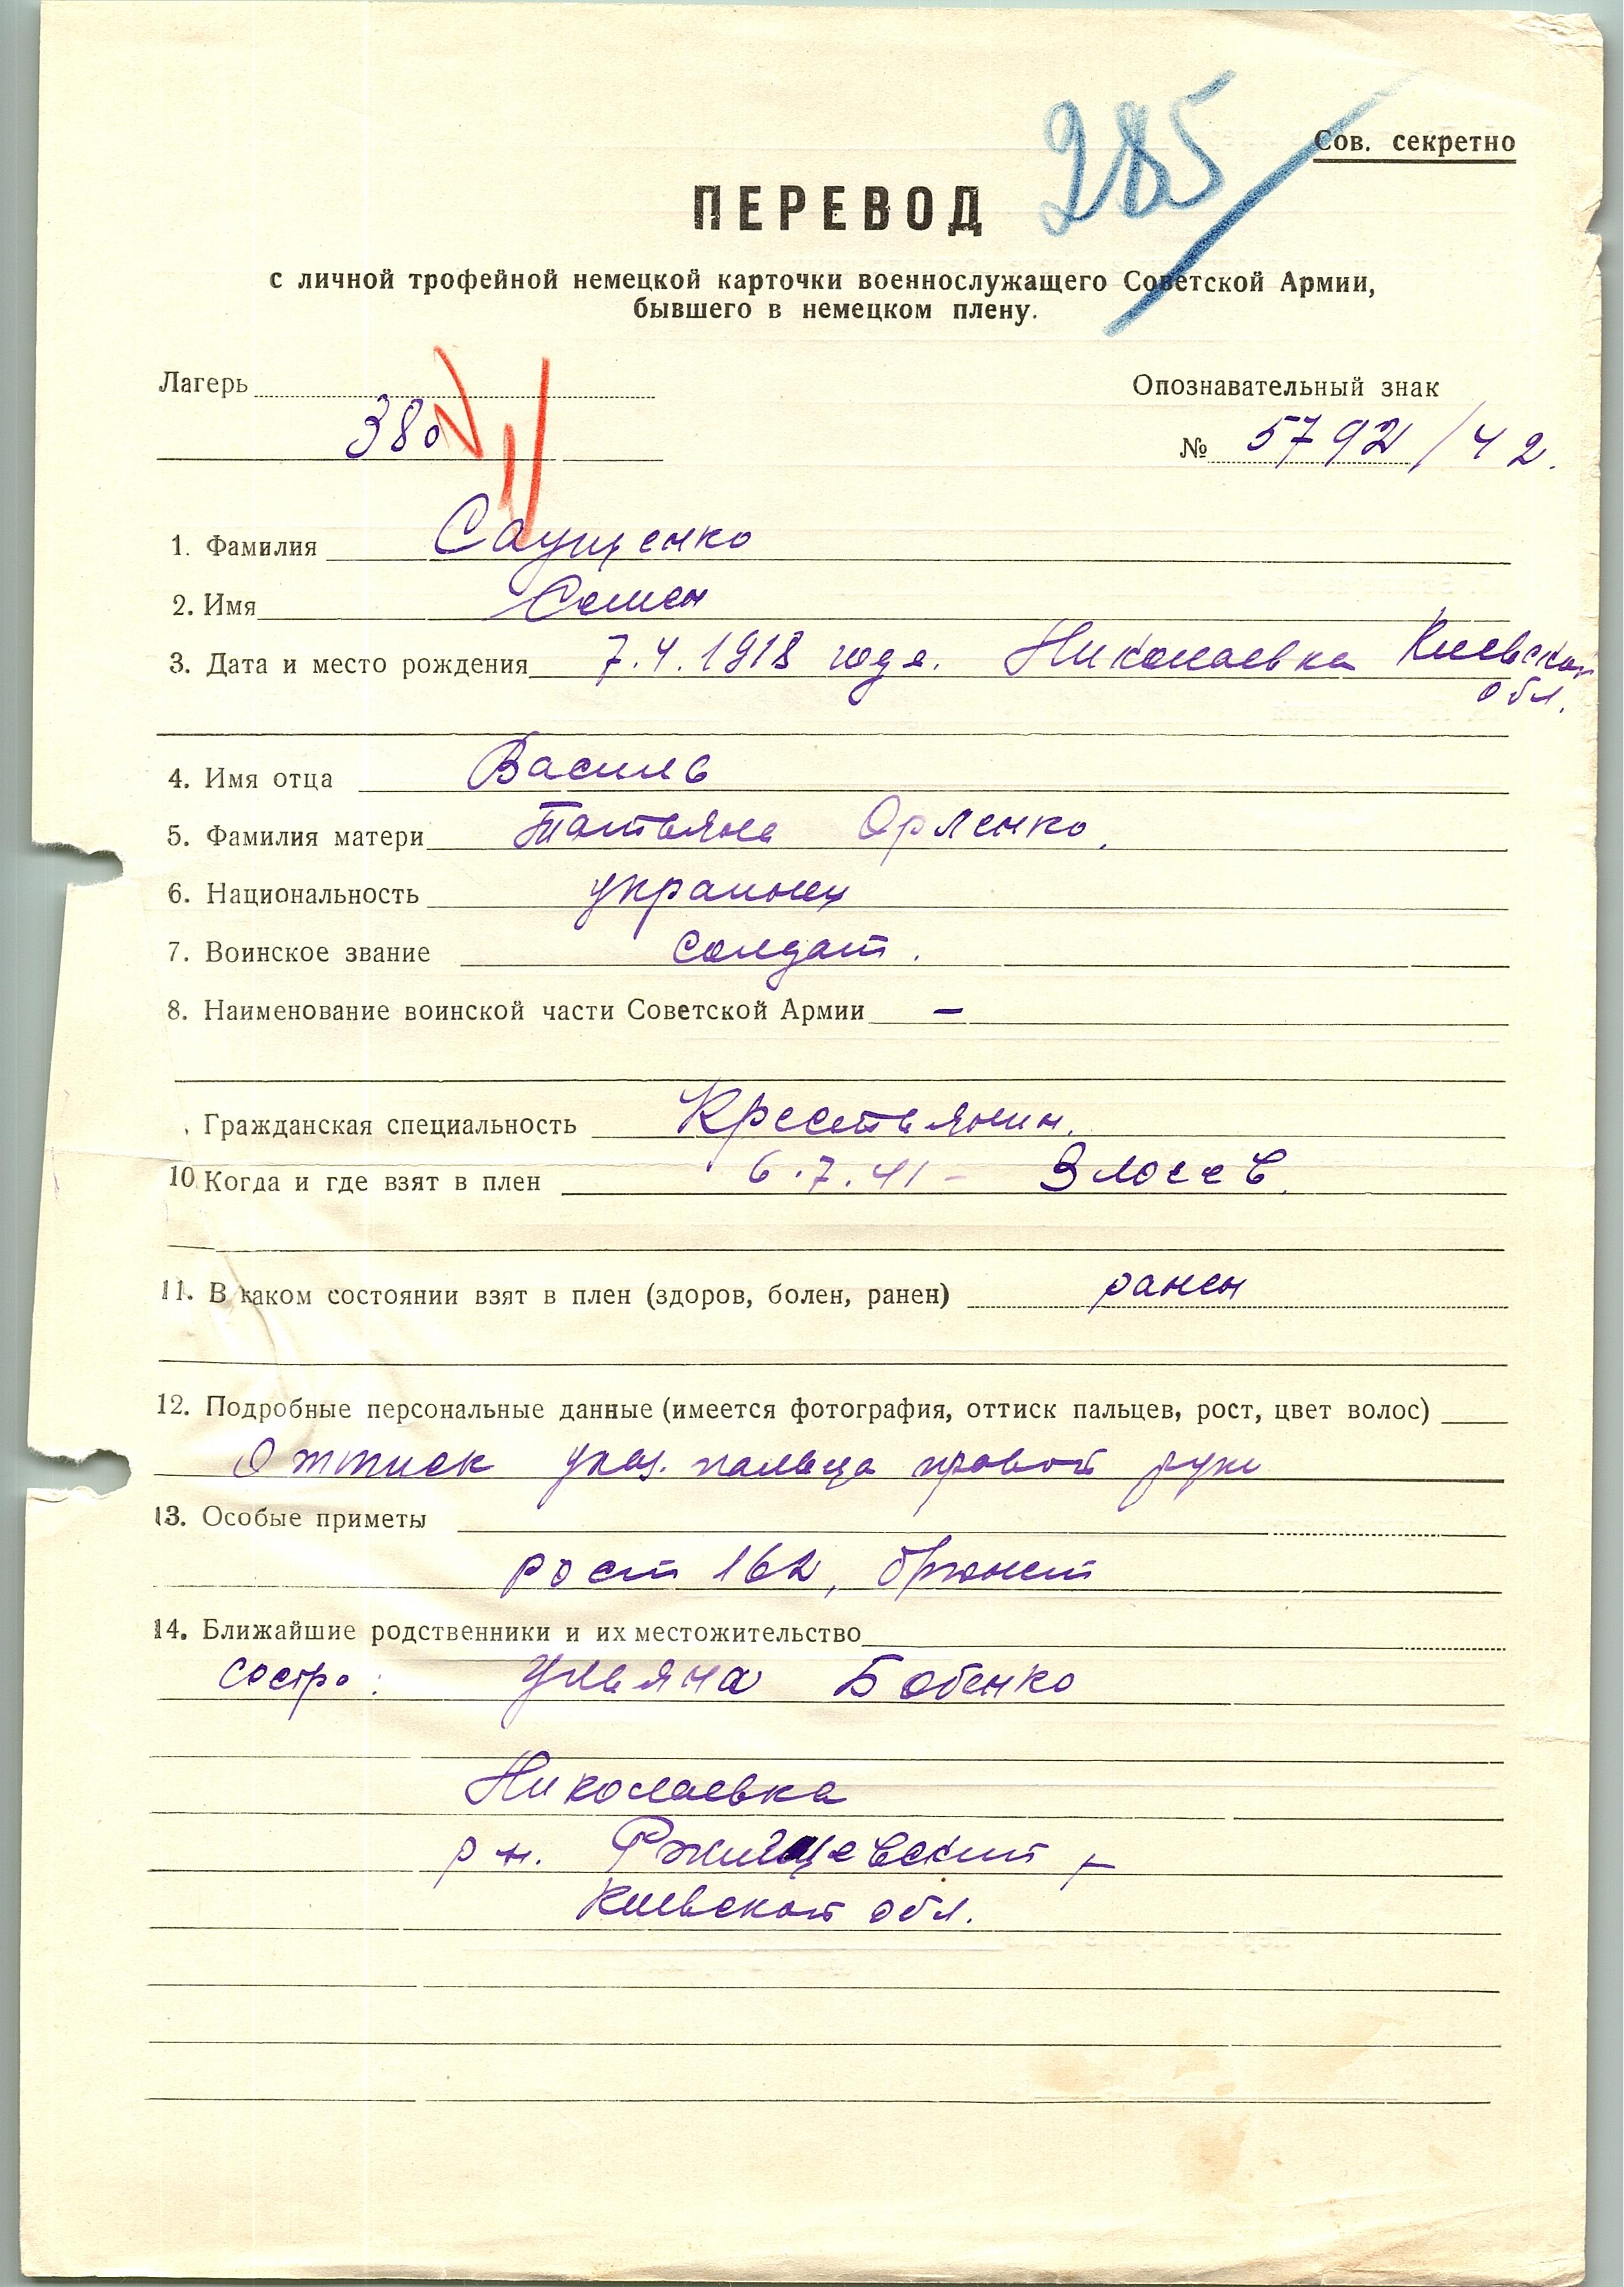 285
Сов. секретно
ПЕРЕВОД
с личной трофейной немецкой карточки военнослужащего Советской Армии,
бывшего в немецком плену.
Лагерь
Опознавательный знак
380
№ 5792/42.
1. Фамилия Саущенко
2. Имя Семен
3. Дата и место рождения 7.4.1918 года. Николаевка Киевская
обл.
4. Имя отца Василь
5. Фамилия матери Татьяна Орленко.
6. Национальность украинец
7. Воинское звание солдат.
8. Наименование воинской части Советской Армии –
Гражданская специальность Крестьянин.
10 Когда и где взят в плен 6.7.41 -
11. В каком состоянии взят в плен (здоров, болен, ранен) ранен
12. Подробные персональные данные (имеется фотография, оттиск пальцев, рост, цвет волос)
Оттиск указ. пальца правой руки
13. Особые приметы
рост 162, брюнет
14. Ближайшие родственники и их местожительство
сестра: Ульяна Бабенко
Николаевка
р н. Ржищевский –
Киевской обл.